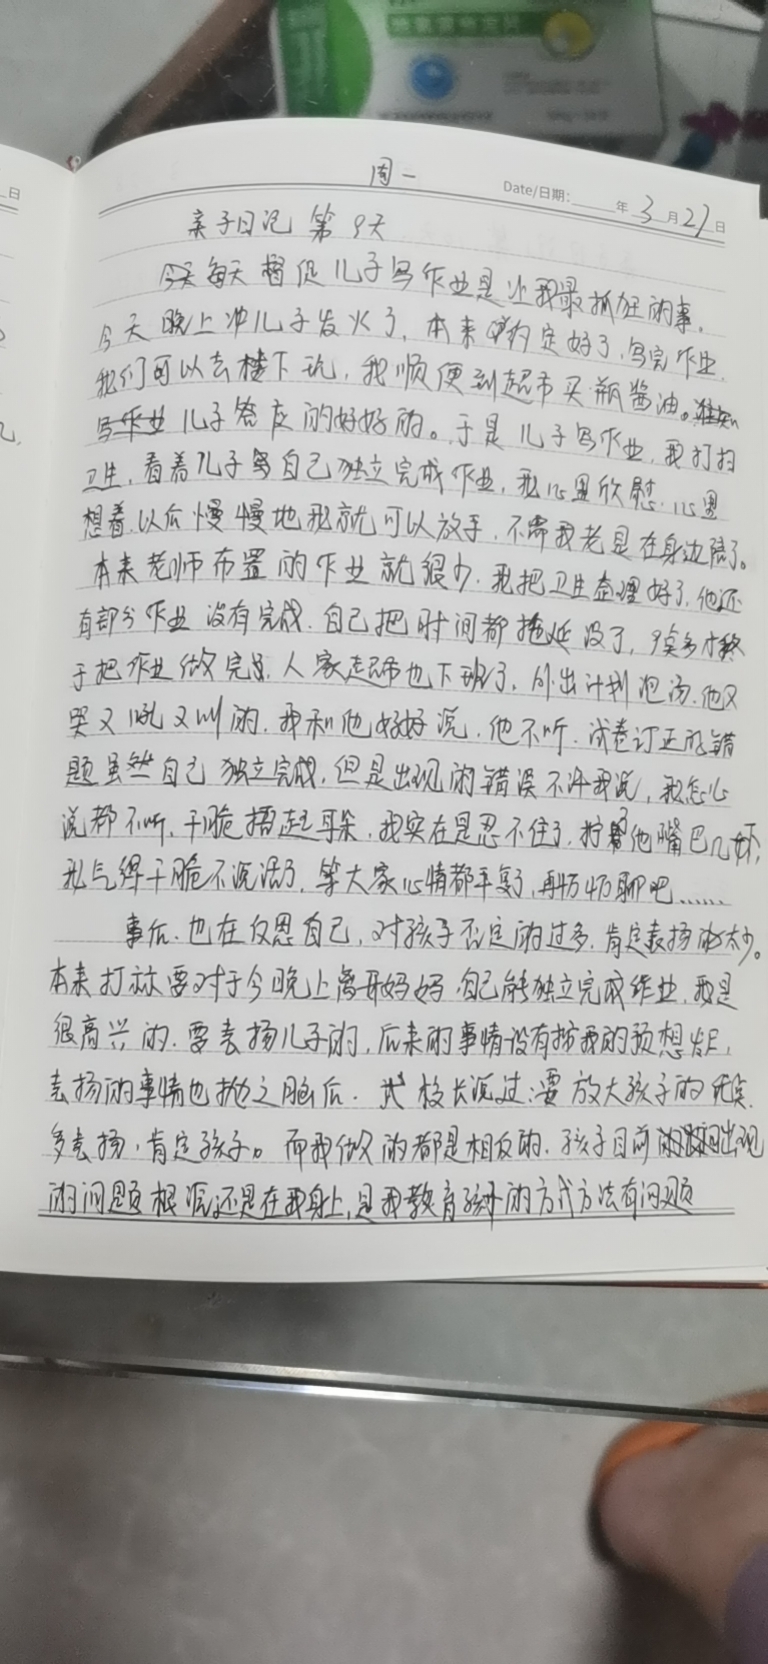 周一
Date/日期: 年 3 月 27 日
亲子日记 第9天
每天督促儿子写作业是让我最抓狂的事。
今天晚上冲儿子发火了，本来约定好了，写完作业，
我们可以去楼下玩，我顺便到超市买瓶酱油。
儿子答应的好好的。于是儿子写作业，我打扫
卫生，看着儿子自己独立完成作业，我心里欣慰，心里
想着，以后慢慢地我就可以放手，不需我老是在身边陪了。
本来老师布置的作业就很少，我把卫生整理好了，他还
有部分作业没有完成，自己把时间都拖延没了，9点多才终
于把作业做完，人家超市也下班了，外出计划泡汤，他又
哭又吼又叫的，我和他好好说，他不听，试卷订正的错
题虽然自己独立完成，但是出现的错误不许我说，我怎么
说都不听，干脆捂起耳朵，我实在是忍不住了，拧了他嘴巴几下，
我气得干脆不说话了，等大家心情都平复了，再好好聊吧……
事后，也在反思自己，对孩子否定的过多，肯定表扬的太少。
本来打算要对于今晚上离开妈妈，自己能独立完成作业，我是
很高兴的，要表扬儿子的，后来的事情没有按我的预想发展，
表扬的事情也抛之脑后，校长说过：要放大孩子的优点，
多表扬，肯定孩子。而我做的都是相反的，孩子目前出现
的问题根源还是在我身上，是我教育孩子的方式方法有问题